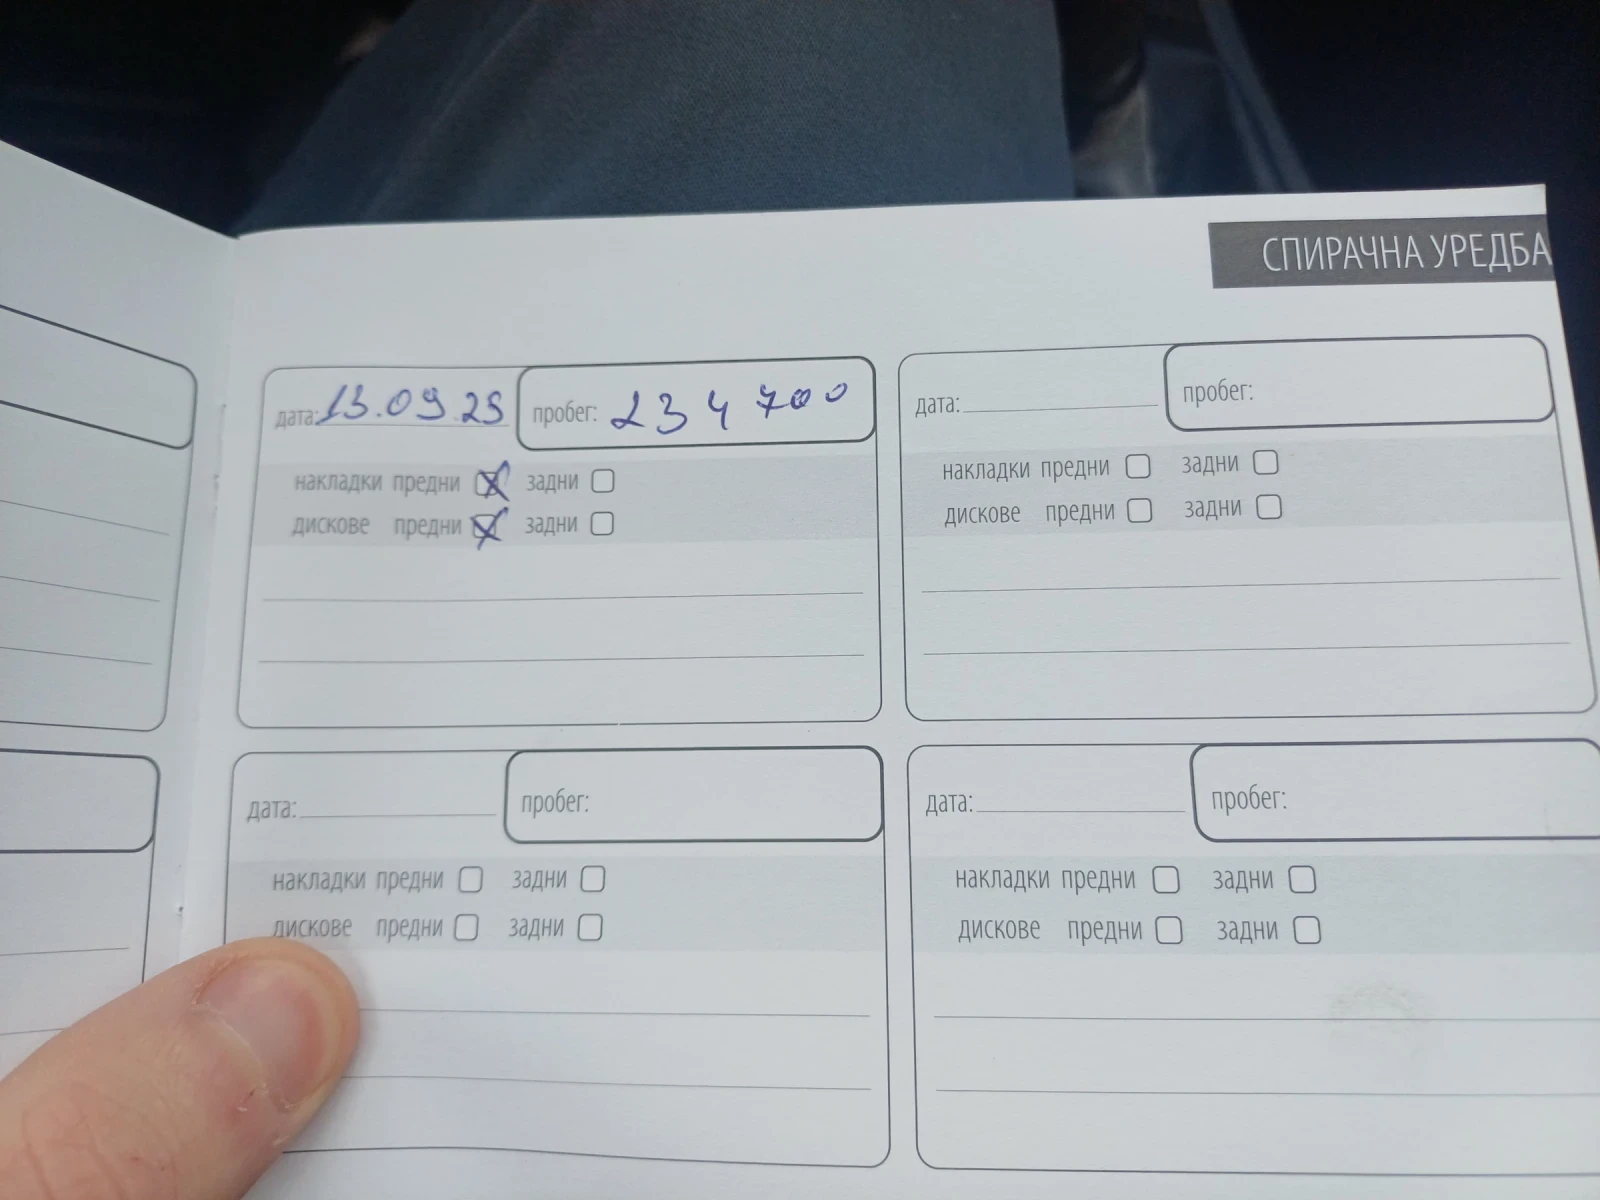 СПИРАЧНА УРЕДБА
дата: 13.09.25 пробег: 234 700
накладки предни задни
дискове предни задни
дата: пробег:
накладки предни задни
дискове предни задни
дата: пробег:
накладки предни задни
дискове предни задни
дата: пробег:
накладки предни задни
дискове предни задни